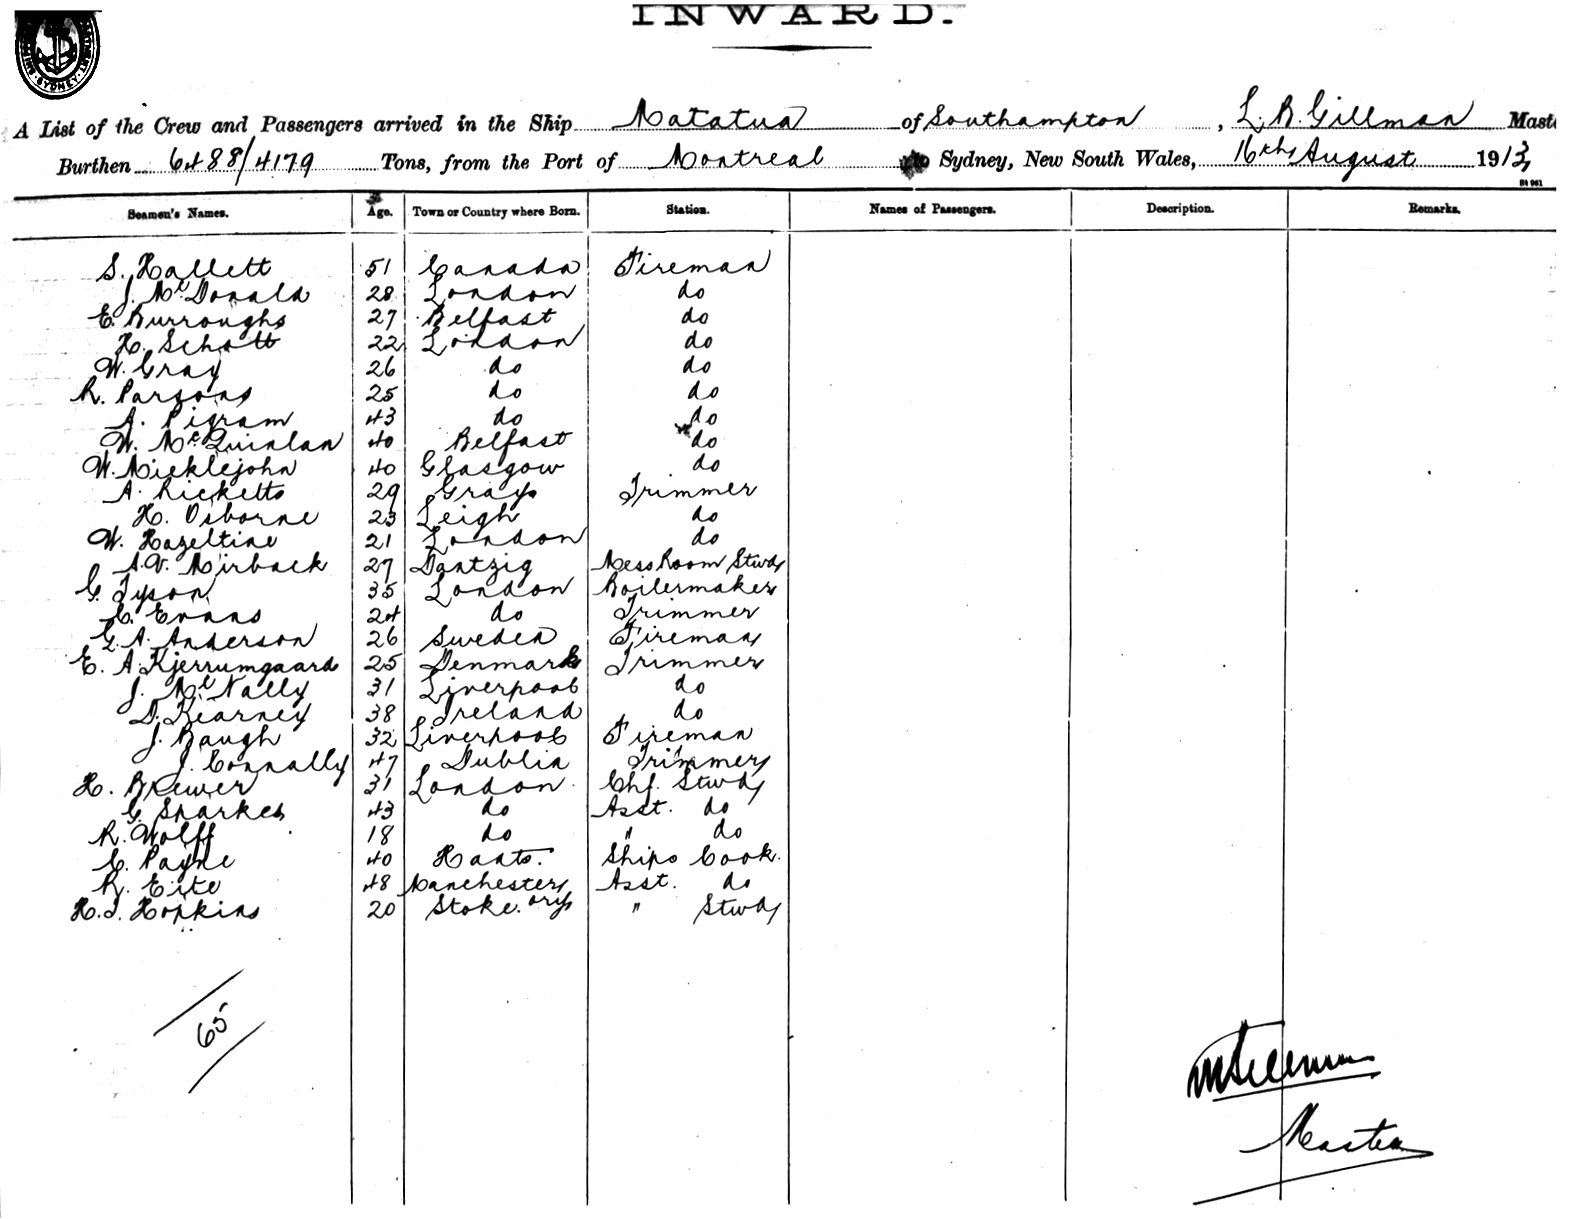 INWARD.
SYDNEY
A List of the Crew and Passengers arrived in the Ship Matatua of Southampton, L. B. Gillman Mast
Burthen 6488/4179 Tons, from the Port of Montreal to Sydney, New South Wales, 16th August 1913
Seamen's Names. Age. Town or Country where Born. Station. Names of Passengers. Description. Remarks.
S. Hallett 51 Canada Fireman
J. McDonald 28 London do
E. Burroughs 27 Belfast do
H. Schott 22 London do
W. Gray 26 do do
R. Parsons 25 do do
A. Pigram 43 do do
W. McQuinlan 40 Belfast do
W. Micklejohn 40 Glasgow do
A. Ricketts 29 Grays Trimmer
H. Osborne 23 Leigh do
W. Hazeltine 21 London do
A.V. Mirback 27 Dantzig Mess Room Stwd
G. Tyson 35 London Boilermaker
C. Evans 24 do Trimmer
G. A. Anderson 26 Sweden Fireman
E. A. Kjerrumgaard 25 Denmark Trimmer
J. McNally 31 Liverpool do
D. Kearney 38 Ireland do
J. Baugh 32 Liverpool Fireman
J. Connally 47 Dublin Trimmer
H. Brewer 31 London Chf. Stwd
G. Sparkes 43 do Asst. do
R. Wolff 18 do " do
C. Payne 40 Hants. Ships Cook.
R. Eite 48 Manchester Asst. do
H. J. Hopkins 20 Stoke. " Stwd
65
Gillman
Master